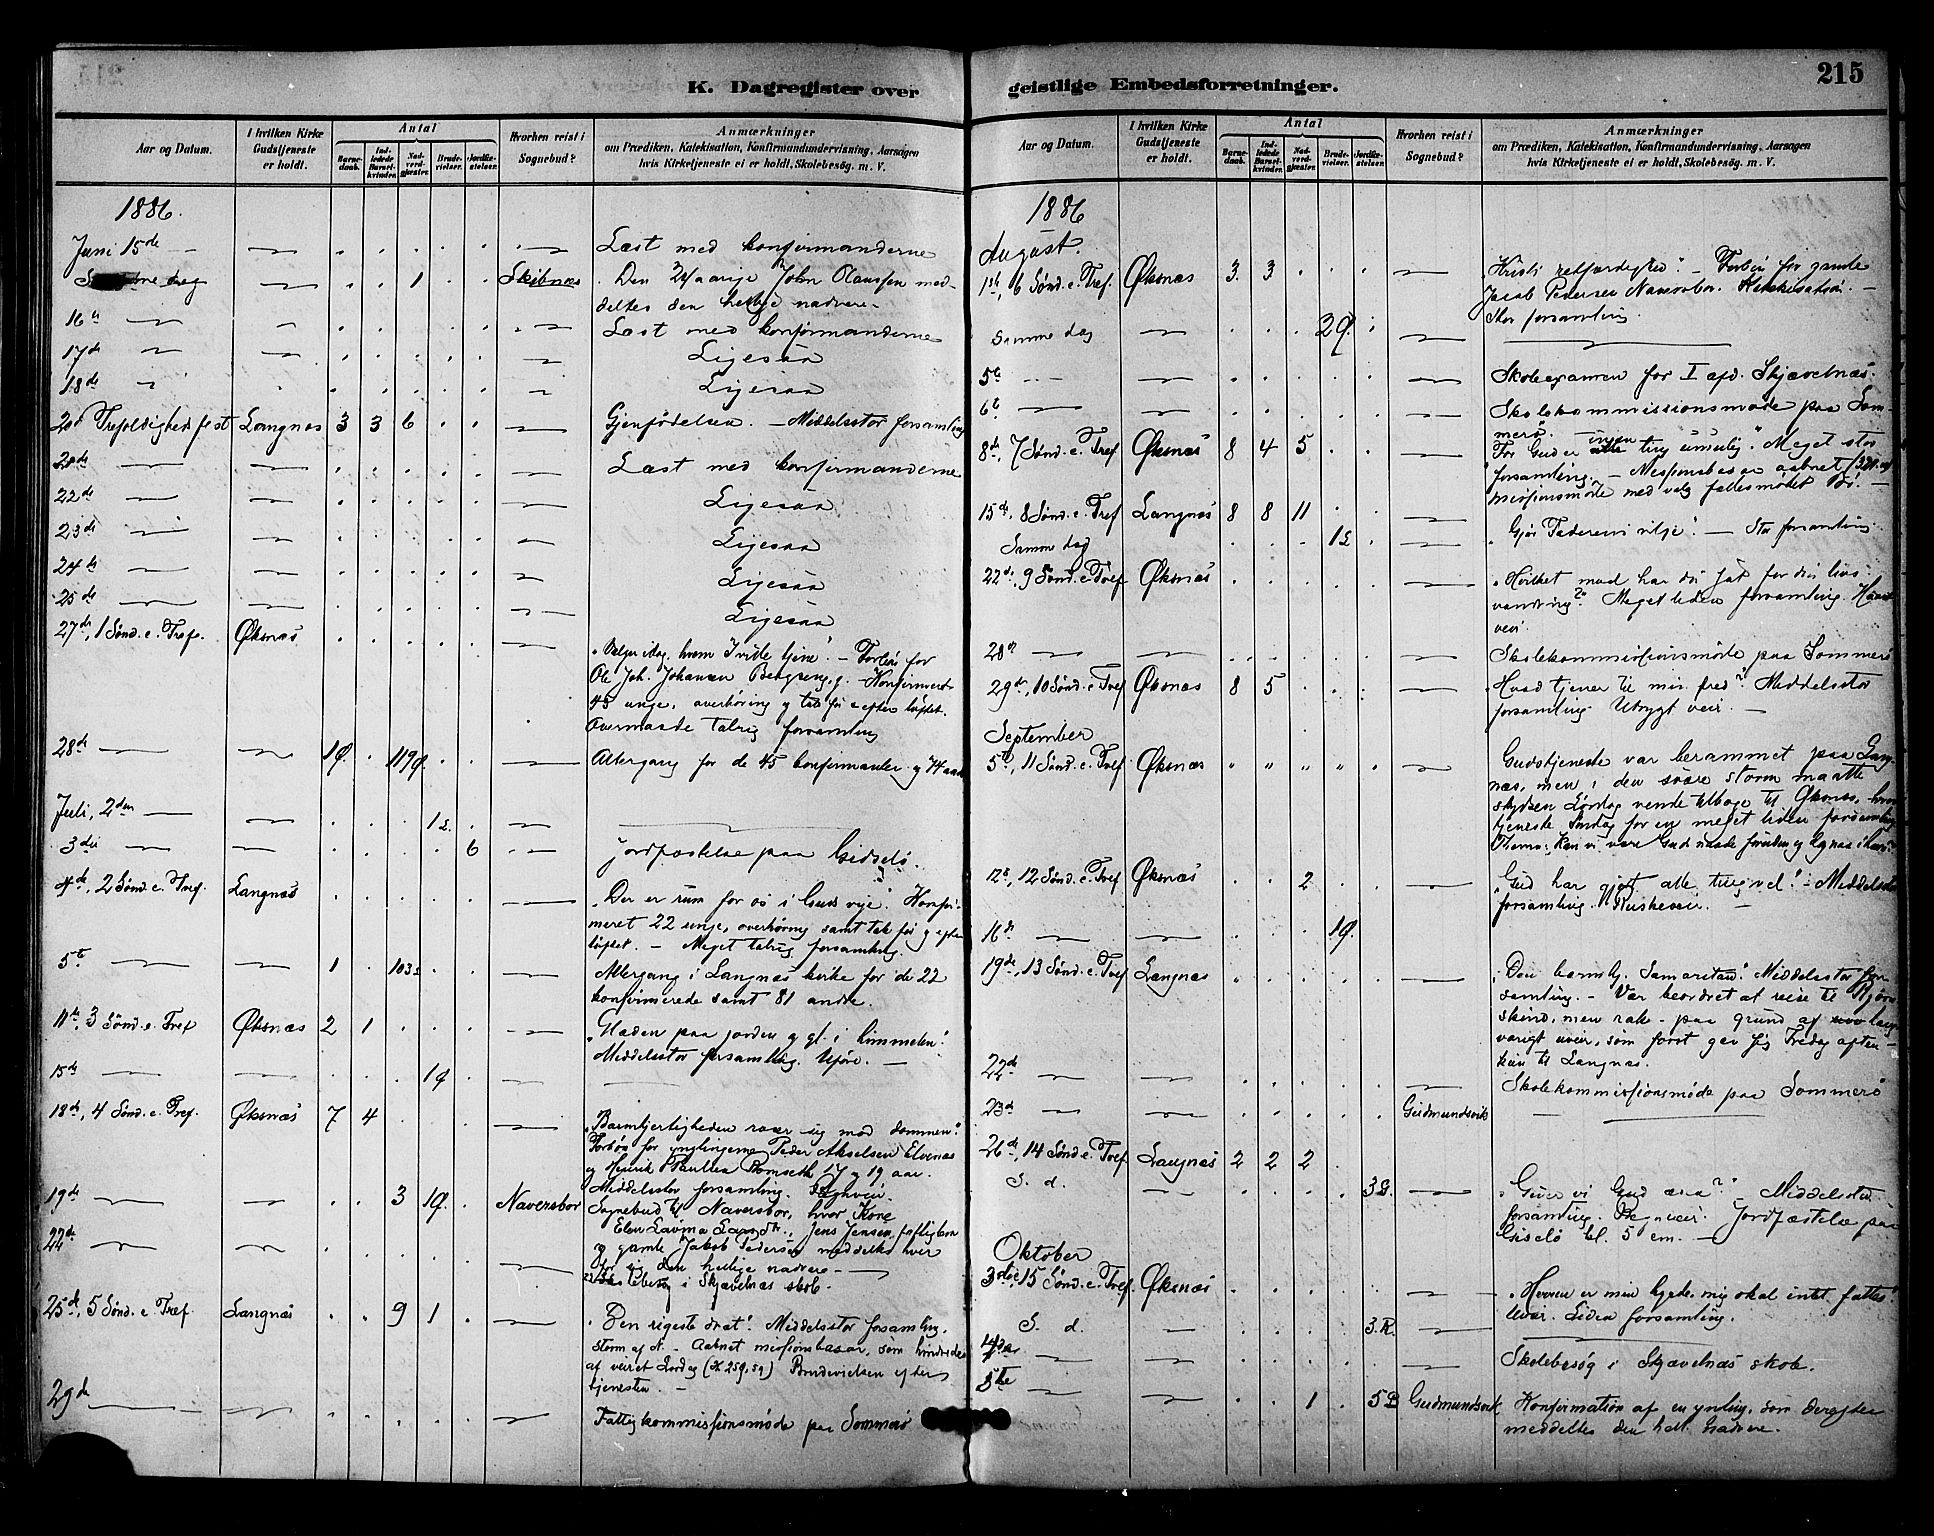 K. Dagregister over
Aar og Datum.
I hvilken Kirke Gudstjeneste er holdt.
Antal
Barnedaab.
Indledede Barselkvinder.
Nadverdgjæster.
Brudevielser.
Jordfæstelser.
Hvorhen reist i Sognebud?
Anmærkninger
om Prædiken, Katekisation, Konfirmandundervisning, Aarsagen
hvis Kirketjeneste ei er holdt, Skolebesøg. m. V.
1886.
Juni 15de Læst med konfirmanderne
dag 1 Skibnæs Den aarige John Olaussen med-
deltes den hellige nadvere
16de Læst med konfirmanderne
17de Ligesaa
18de Ligesaa
20de Trefoldighedsfest Langnæs 3 3 6 Gjenfødelsen. — Middelsstor forsamling
Læst med konfirmanderne
22de Ligesaa
23de Ligesaa
24de Ligesaa
25de Ligesaa
27de, 1 Sønd. e. Tref. Øksnæs
"Vælger idag, hvem I ville tjene". — Forbøn for
Ole Joh. Johansen — Konfirmeret
45 unge, overhøring og tale før og efter løftet.
Overmaade talrig forsamling
28de 119 Altergang for de 45 konfirmanter og 74 andre
Juli, 2den
3die 6 Jordfæstelse paa Gidselø.
4de, 2 Sønd. e. Tref. Langnæs "Der er rum for os i Guds rige". Konfir-
meret 22 unge, overhøring samt tale før og efter
løftet. — Meget talrig forsamling.
5te 1 103 Altergang i Langnæs kirke for de 22
konfirmerede samt 81 andre.
11te, 3 Sønd. e. Tref Øksnæs 2 1 "Glæden paa jorden og gl. i himmelen".
Middelsstor forsamling. Uføre. —
15de
18de, 4 Sønd. e. Tref. Øksnæs 7 4 "Barmhjertigheden roser sig mod dommen".
Forbøn for ynglingerne Peder Akselsen Elvenæs
og Henrik 17 og 19 aar.
Middelsstor forsamling.
19de 3 Naversbor Sognebud til Naversbor, hvor Kone
Jens Jensen
og gamle Jakob Pedersen meddeltes hver
for sig den hellige nadvere —
22de i Skjævelnæs skole.
25de, 5 Sønd. e. Tref. Langnæs 9 1 "Den rigeste skat". Middelsstor forsamling.
Storm af N. — Aabnet missionsbasar, som hindredes
af veiret Lørdag (K 259,59) Brudevielsen efter
tjenesten. —
29de Fattigkommissionsmøde paa Sommerø
geistlige Embedsforretninger.
215
Aar og Datum.
I hvilken Kirke Gudstjeneste er holdt.
Antal
Barnedaab.
Indledede Barselkvinder.
Nadverdgjæster.
Brudevielser.
Jordfæstelser.
Hvorhen reist i Sognebud?
Anmærkninger
om Prædiken, Katekisation, Konfirmandundervisning, Aarsagen
hvis Kirketjeneste ei er holdt, Skolebesøg. m. V.
1886
August.
1ste, 6 Sønd. e. Tref. Øksnæs 3 3 "Kristi retfærdighed". — Forbøn for gamle
Jacob Pedersen Naversbor. Katekisation. —
Stor forsamling.
Samme dag
5te Skoleexamen for I afd. Skjævelnæs.
6te Skolekommissionsmøde paa Som-
merø.
8de, 7 Sønd. e. Tref Øksnæs 8 4 5 For Gud er ingen ting umulig". Meget stor
forsamling. — Missionsbasar aabnet
missionsmøde med valg fællesmødet Bø. —
15de, 8 Sønd. e. Tref Langnæs 8 8 11 "Gjør Faderens vilje". — Stor forsamling
Samme dag
22de, 9 Sønd. e. Tref Øksnæs "Hvilket maal har du sat for din livs
vandring"? Meget liden forsamling.
veir.
28de Skolekommissionsmøde paa Sommerø
29de, 10 Sønd. e. Tref Øksnæs 8 5 "Hvad tjener til min fred"? Middelsstor
forsamling. Utrygt veir. —
September
5te, 11 Sønd. e. Tref Øksnæs " " " " " Gudstjeneste var berammet paa Lang-
næs, men i den svære storm maatte
skydsen Lørdag vende tilbage til Øksnæs, hvor
tjeneste Søndag for en meget liden forsamling
Thema: Kan vi være Guds naade foruden og
12te, 12 Sønd. e. Tref Øksnæs 2 "Gud har gjort alle ting vel". — Middelsstor
forsamling. Ruskeveir. —
16de
19de, 13 Sønd. e. Tref Langnæs "Den barmhj. Samaritan". Middelsstor for-
samling. — Var beordret at reise til Bjørn-
skind, men rak — paa grund af lang-
varigt uveir, som først gav sig Fredag aften —
kun til Langnæs.
22de Skolekommissionsmøde paa Sommerø
23de Gudmundsvik —
26de, 14 Sønd. e. Tref Langnæs 2 2 2
S. d. "Giver vi Gud æren"? — Middelsstor
forsamling. veir. Jordfæstelse paa
Giselø kl. 5 em. —
Oktober
3die, 15 Sønd. e. Tref. Øksnæs "Herren er min hyrde, mig skal intet fattes".
Uveir. Liden forsamling.
S. d.
4de Skolebesøg i Skjævelnæs skole.
5te 1 Gudmundsvik Konfirmation af en yngling, som derefter
meddeltes den hell. Nadvere.